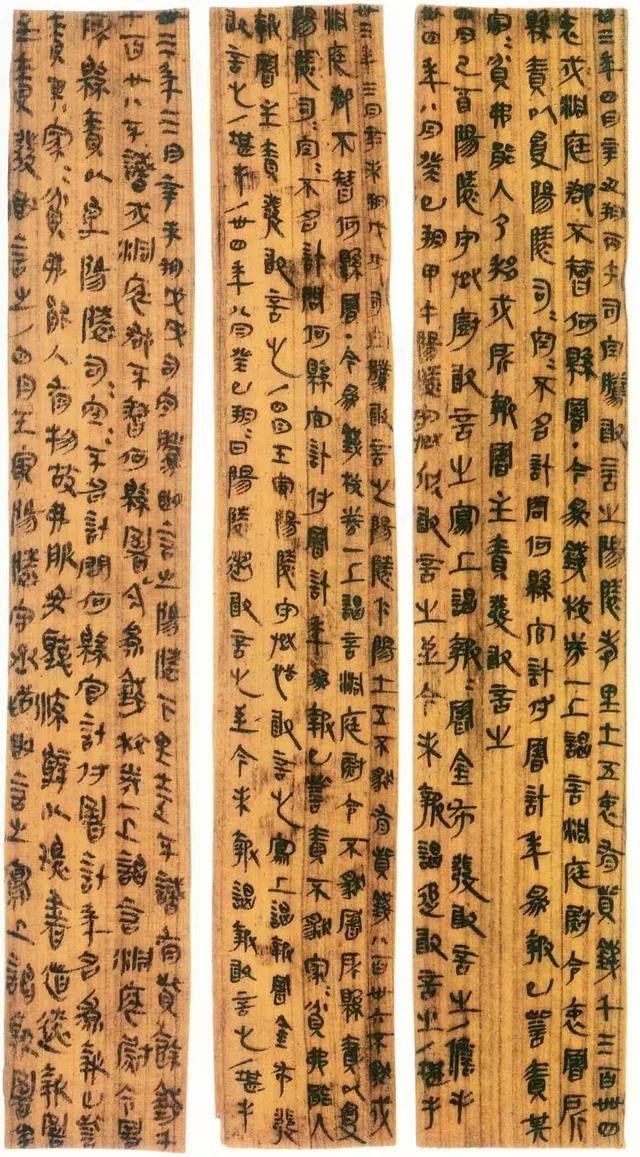 卅三年四月辛丑朔丙午司空騰敢言之陽陵孝里士五衷有貲錢千三百卌四
衷戍洞庭郡不智何縣署·今為錢校券一上謁言洞庭尉令衷署所
縣責以受陽陵司=空=不名計問何縣官計付署計年為報已訾責其
家=貧弗能入乃移戍所報署主責發敢言之
四月己酉陽陵守丞廚敢言之寫上謁報=署金布發敢言之/儋手
卅四年八月癸巳朔甲午陽陵守丞欣敢言之至今未報謁追敢言之/堪手
卅三年三月辛未朔戊戌司空騰敢言之陽陵下陽士五不豯有貲錢八百卅六不豯戍
洞庭郡不智何縣署·今為錢校券一上謁言洞庭尉令不豯署所縣責以受
陽陵司=空=不名計問何縣官計付署計年為報已訾責不豯家=貧弗能入
報署主責發敢言之/四月壬寅陽陵守丞恬敢言之寫上謁報署金布發
敢言之/堪手/卅四年八月癸巳朔=日陽陵遬敢言之至今未報謁報敢言之/堪手
卅三年三月辛未朔戊戌司空騰敢言之陽陵下里士五不識有貲餘錢
千七百廿八不識戍洞庭郡不智何縣署今為錢校券一上謁言洞庭尉令署
所縣責以受陽陵司=空=不名計問何縣官計付署計年名為報已訾
責其家=貧弗能入有物故弗服毋聽流辭以環書道遠報署
主責發敢言之/四月壬寅陽陵守丞恬敢言之寫上謁報署金